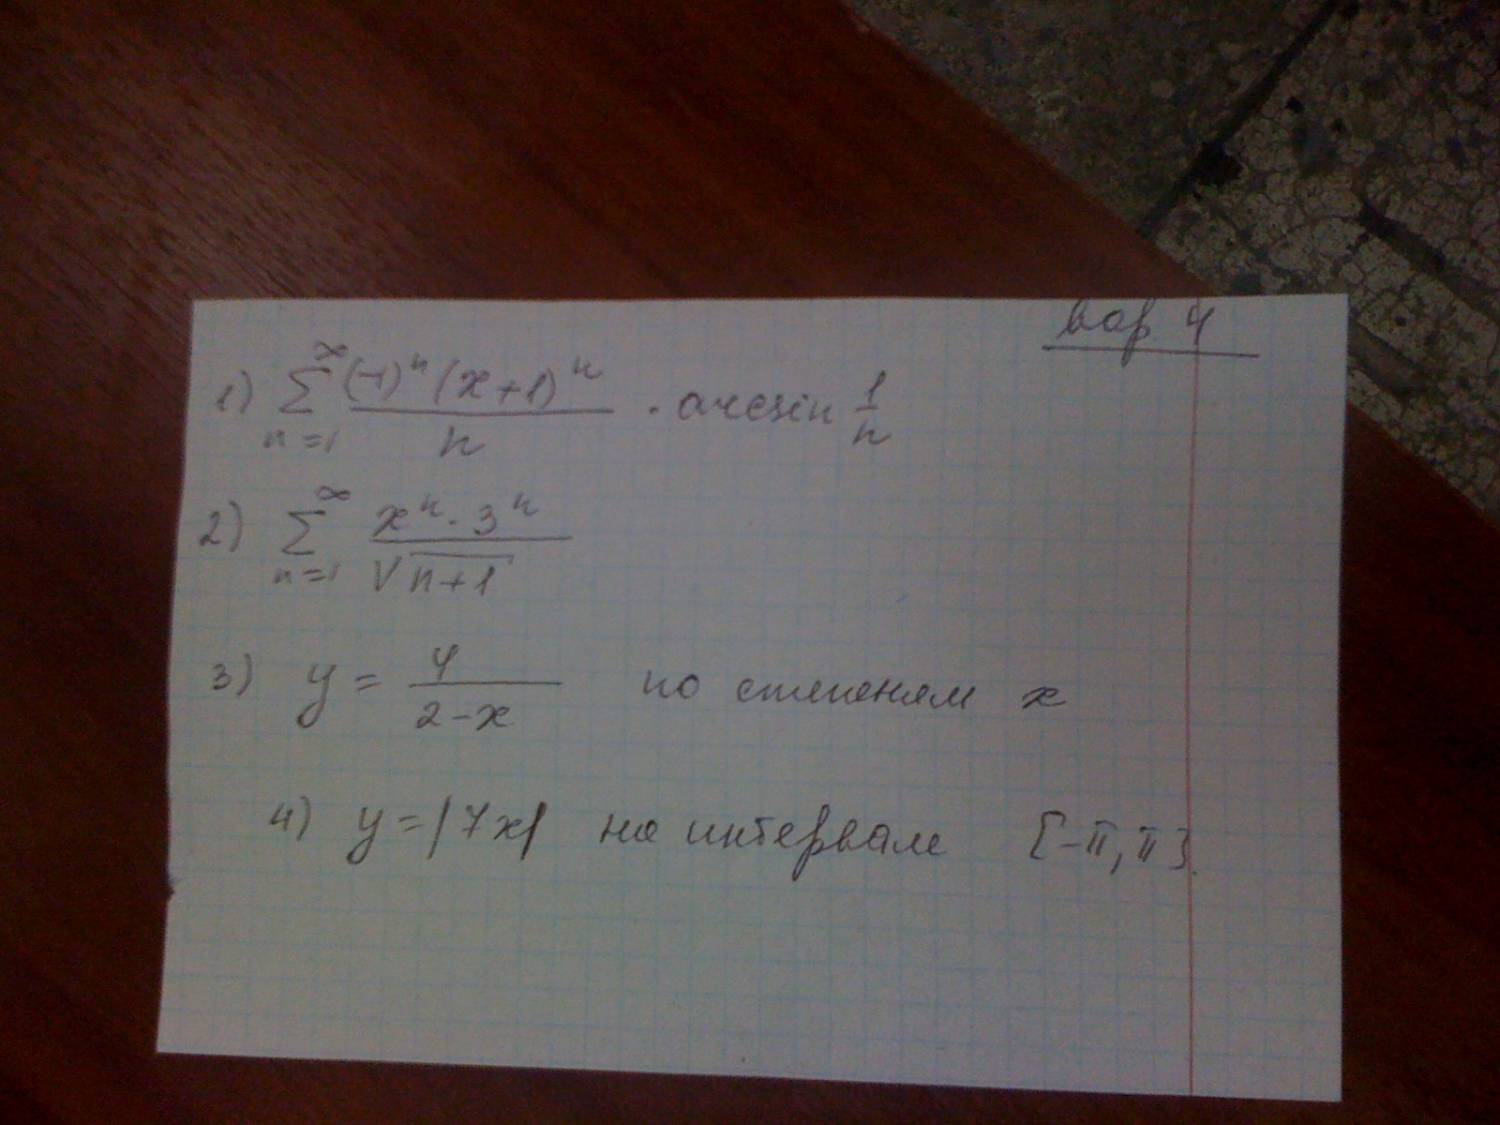 вар 4
1) ∑_{n=1}^{∞} \frac{(-1)^n (x+1)^n}{n} · arcsin \frac{1}{n}
2) ∑_{n=1}^{∞} \frac{x^n · 3^n}{\sqrt{n+1}}
3) y = \frac{4}{2-x} по степеням x
4) y = |7x| на интервале [-π, π].